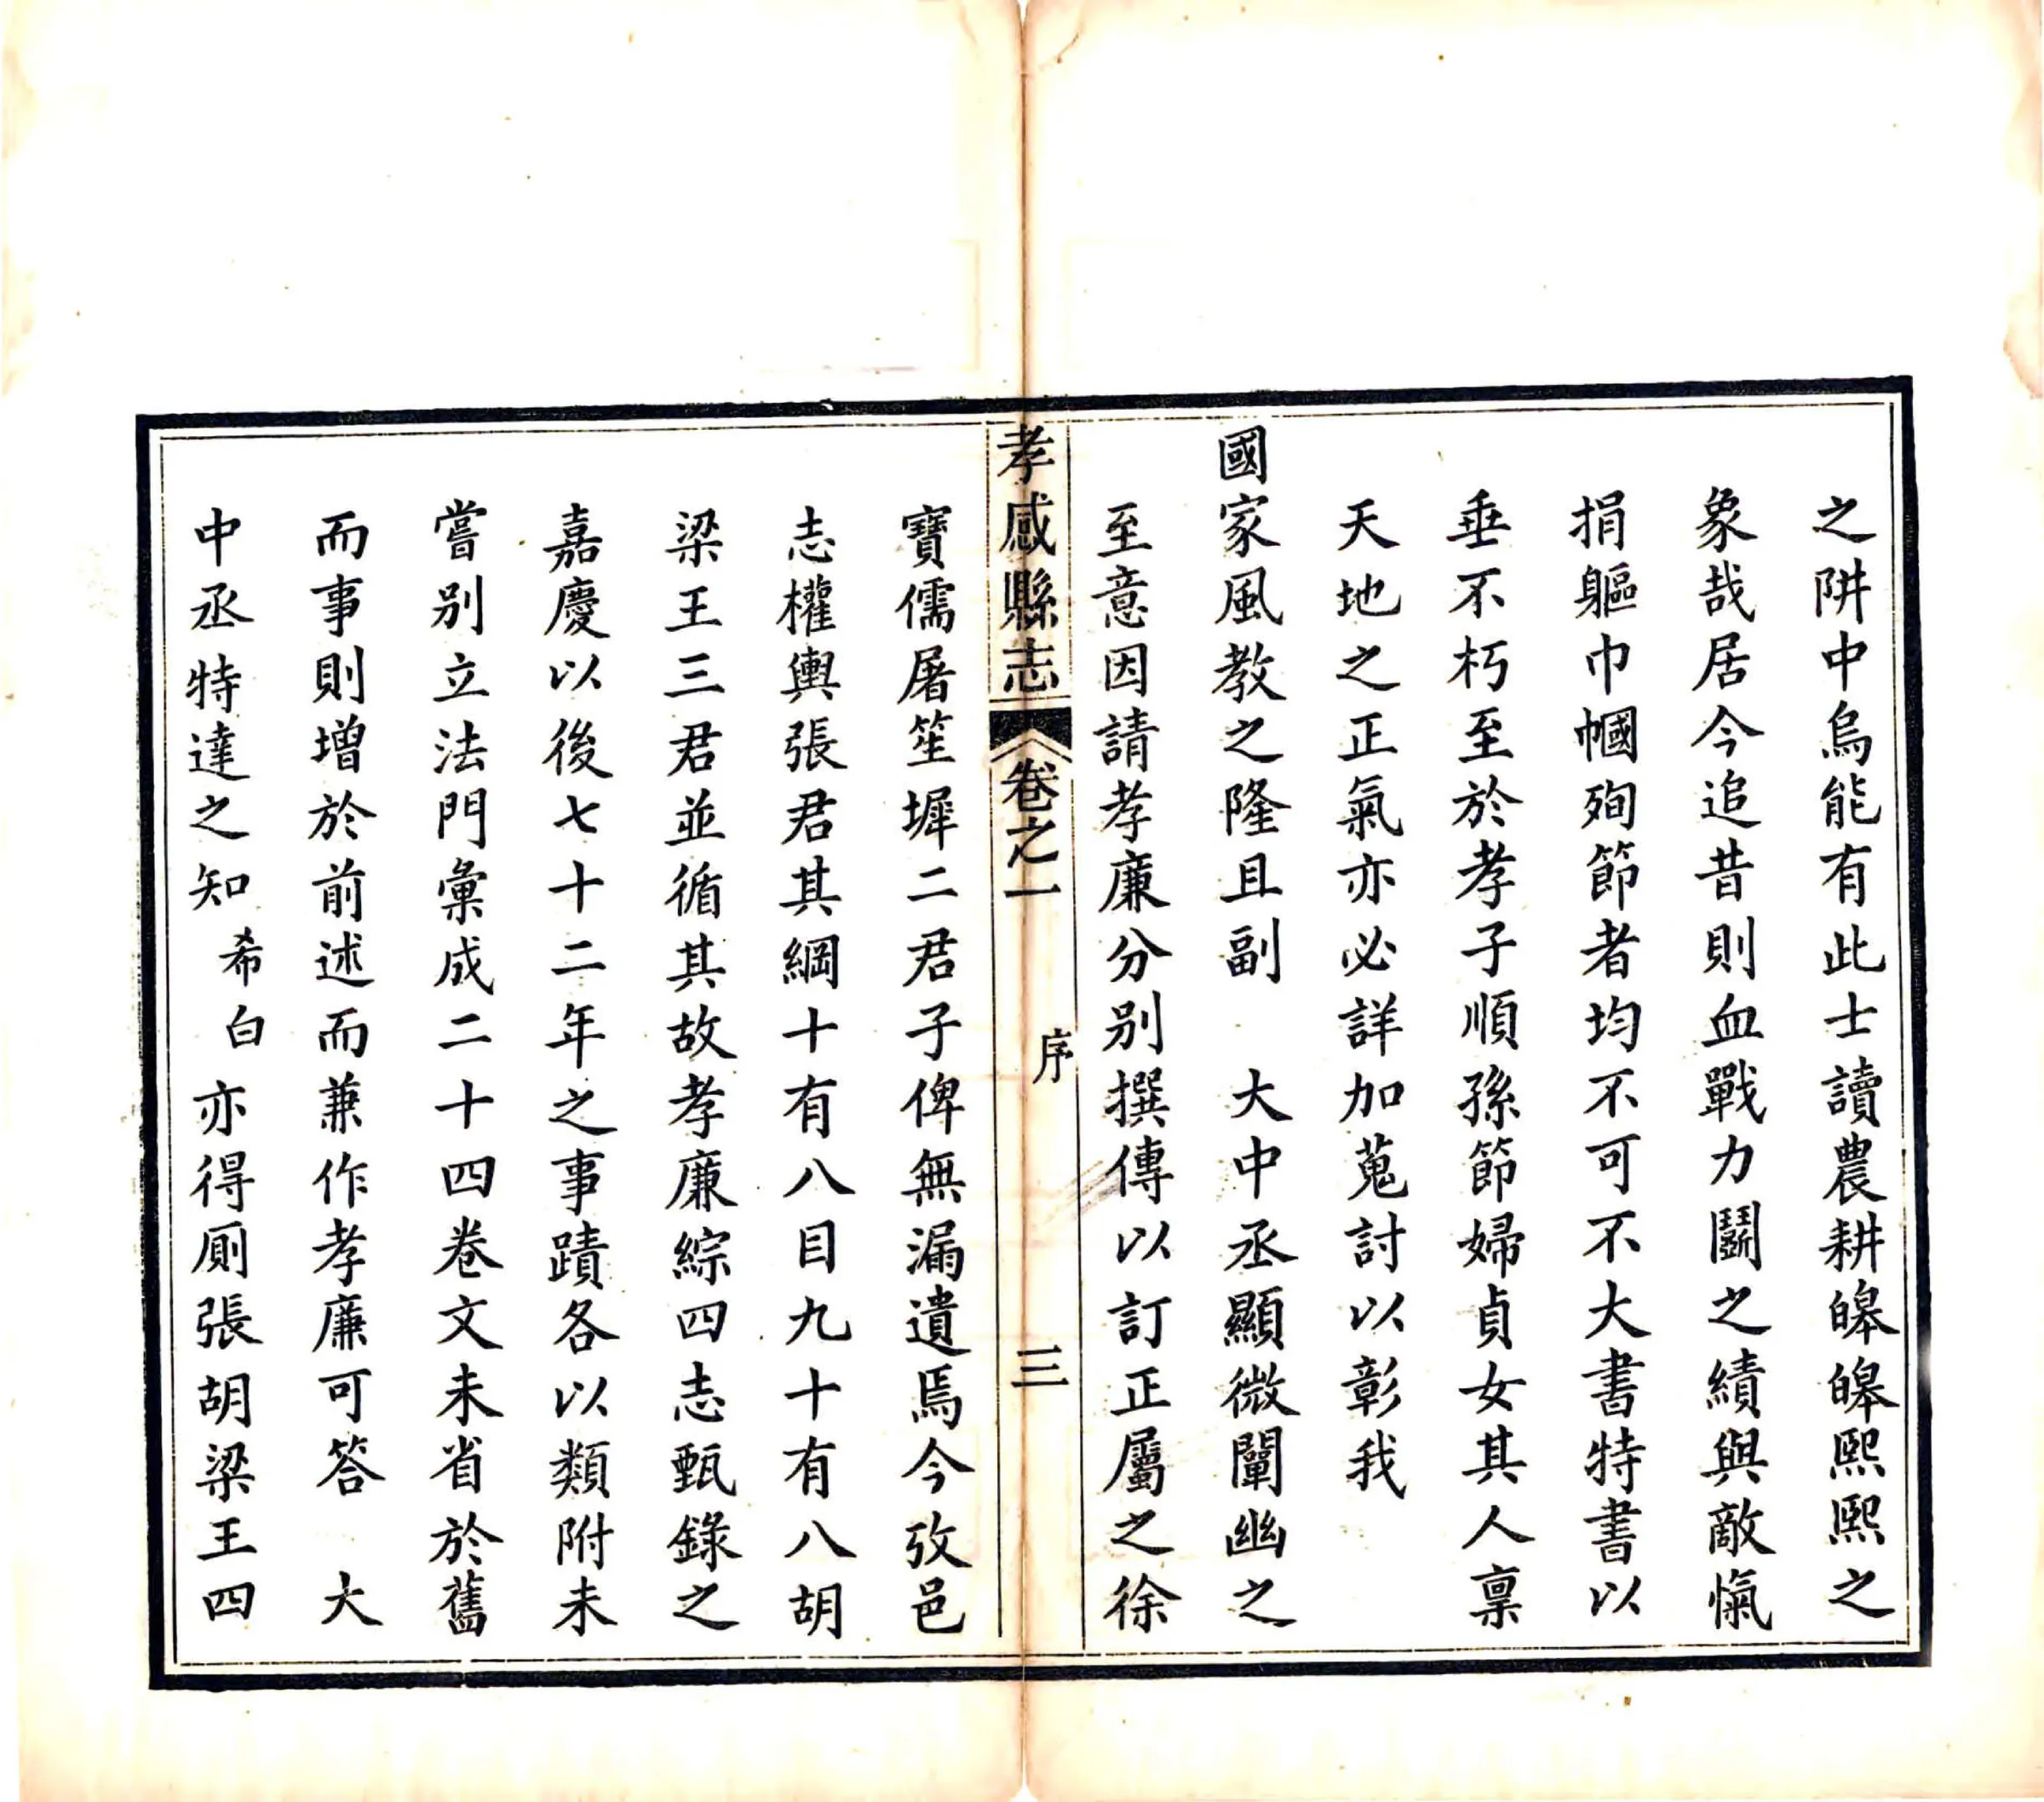 之阱中烏能有此士讀農耕皞皞熙熙之
象哉居今追昔則血戰力鬭之績與敵愾
捐軀巾幗殉節者均不可不大書特書以
垂不朽至於孝子順孫節婦貞女其人稟
天地之正氣亦必詳加蒐討以彰我
國家風教之隆且副　大中丞顯微闡幽之
至意因請孝廉分別撰傳以訂正屬之徐
孝感縣志　卷之一　序　三
寶儒屠笙墀二君子俾無漏遺焉今攷邑
志權輿張君其綱十有八目九十有八胡
梁王三君並循其故孝廉綜四志甄錄之
嘉慶以後七十二年之事蹟各以類附未
嘗別立法門彙成二十四卷文未省於舊
而事則增於前述而兼作孝廉可答　大
中丞特達之知希白亦得厠張胡梁王四